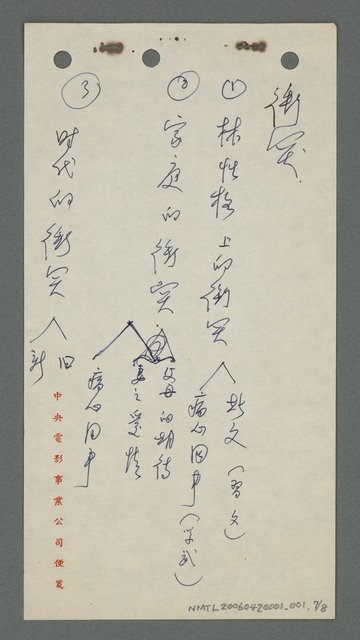 衝突
① 林性格上的衝突
斯文（習文）
痛心國事（学武）
② 家庭的衝突
父母的期待
妻之愛情
痛心國事
③ 时代的衝突
旧
新
中央電影事業公司便箋
NMTL20060420001_001, 7/8